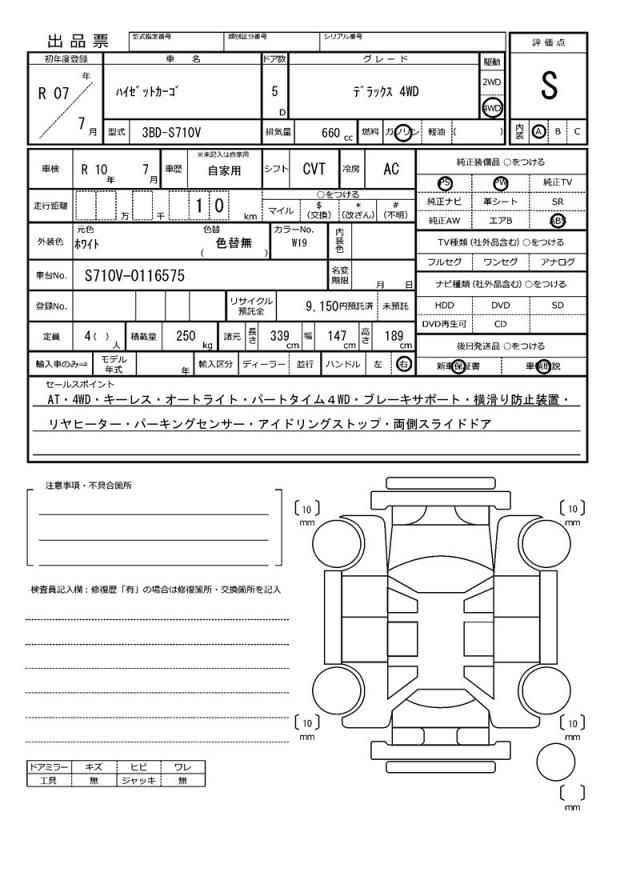 出品票 型式指定番号 類別区分番号 シリアル番号
評価点
S
内装 A B C
初年度登録 車名 ドア数 グレード 駆動
R 07 年 7 月
ﾊｲｾﾞｯﾄｶｰｺﾞ 5 D ﾃﾞﾗｯｸｽ 4WD 2WD 4WD
型式 3BD-S710V 排気量 660 cc 燃料 ガソリン 軽油 ( )
車検 R 10 年 7 月 車歴 ※未記入は自家用 自家用 シフト CVT 冷房 AC
走行距離 万 千 1 0 km
○をつける
マイル $(交換) *(改ざん) #(不明)
外装色 元色 ﾎﾜｲﾄ 色替 色替無 ( ) カラーNo. W19 内装色
車台No. S710V-0116575 名変期限 月 日
登録No. リサイクル預託金 9,150円預託済 未預託
定員 4( ) 人 積載量 250 kg 諸元 長さ 339 cm 幅 147 cm 高さ 189 cm
輸入車のみ⇒ モデル年式 年 輸入区分 ディーラー 並行 ハンドル 左 右
純正装備品 ○をつける
PS PW 純正TV
純正ナビ 革シート SR
純正AW エアB ABS
TV種類 (社外品含む) ○をつける
フルセグ ワンセグ アナログ
ナビ種類 (社外品含む) ○をつける
HDD DVD SD
DVD再生可 CD
後日発送品 ○をつける
新車保証書 車輌取説
セールスポイント
AT・4WD・キーレス・オートライト・パートタイム４WD・ブレーキサポート・横滑り防止装置・
リヤヒーター・パーキングセンサー・アイドリングストップ・両側スライドドア
注意事項・不具合箇所
検査員記入欄：修復歴「有」の場合は修復箇所・交換箇所を記入
〔10〕 〔10〕
mm mm
〔10〕 〔10〕
mm mm
〔 〕
mm
ドアミラー キズ ヒビ ワレ
工具 無 ジャッキ 無